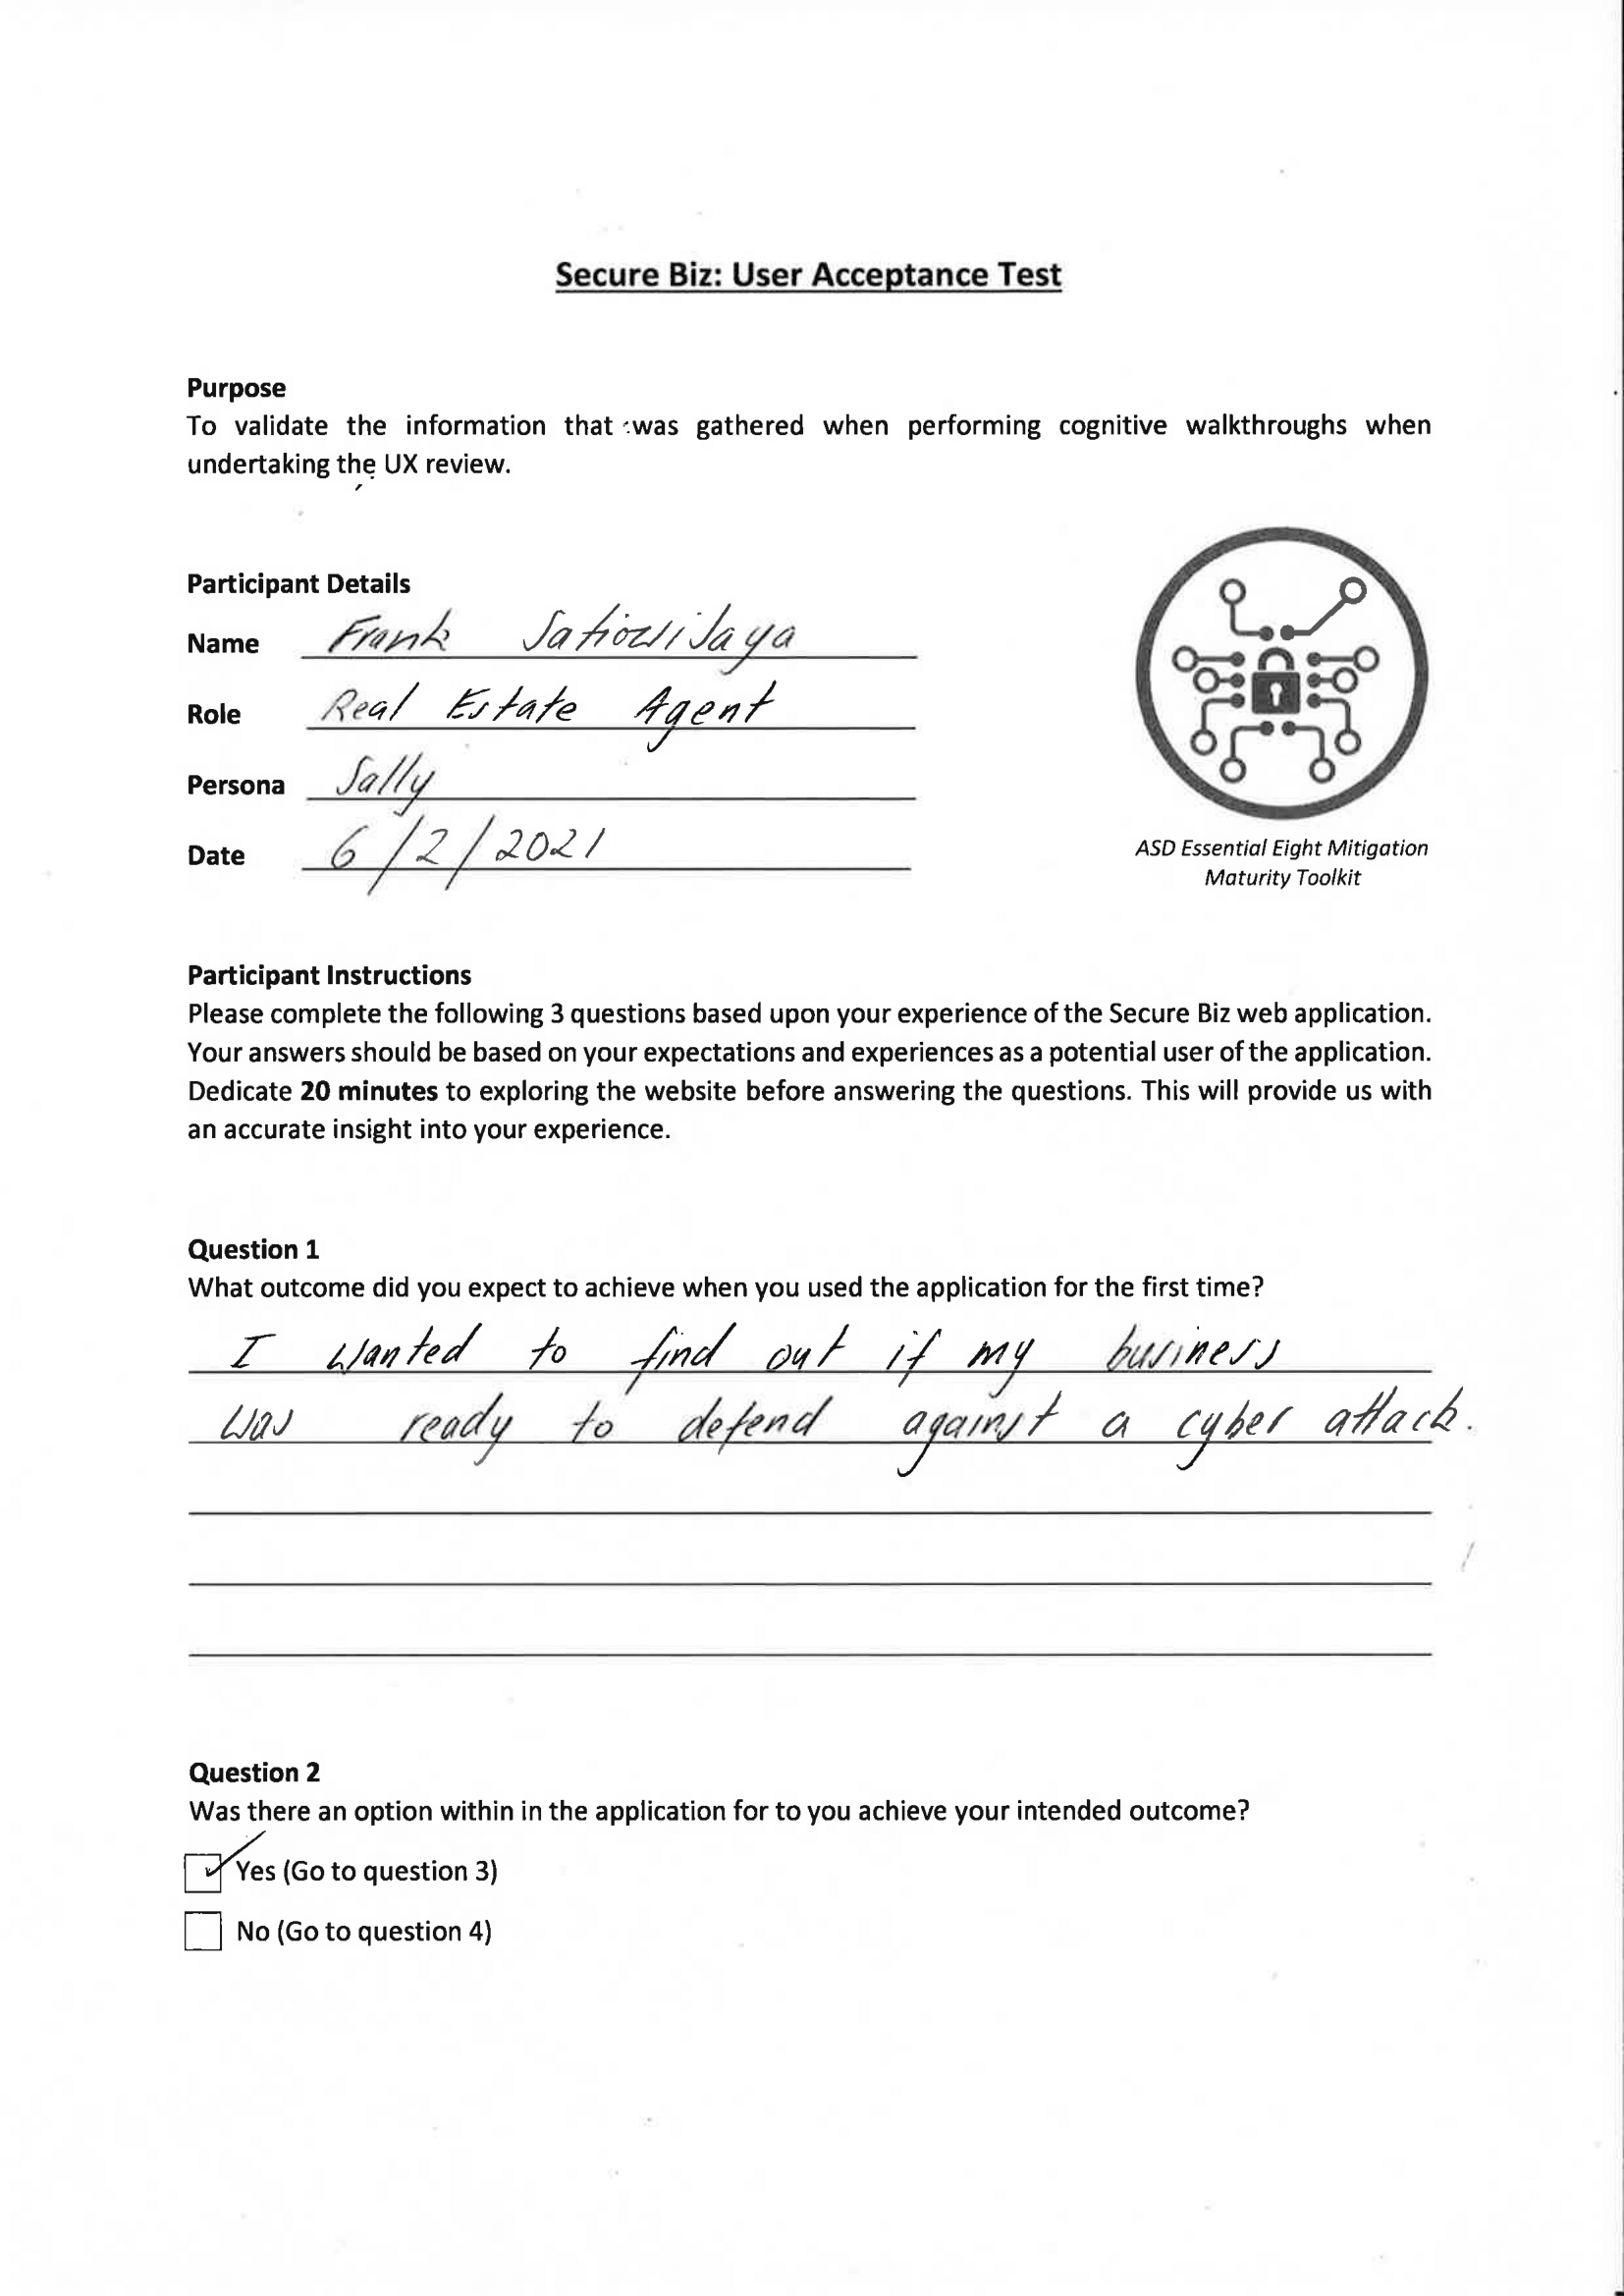 Secure Biz: User Acceptance Test
Purpose
To validate the information that was gathered when performing cognitive walkthroughs when
undertaking the UX review.
Participant Details
Name Frank
Role Real Estate Agent
Persona Sally
Date 6/2/2021
ASD Essential Eight Mitigation
Maturity Toolkit
Participant Instructions
Please complete the following 3 questions based upon your experience of the Secure Biz web application.
Your answers should be based on your expectations and experiences as a potential user of the application.
Dedicate 20 minutes to exploring the website before answering the questions. This will provide us with
an accurate insight into your experience.
Question 1
What outcome did you expect to achieve when you used the application for the first time?
I wanted to find out if my business
was ready to defend against a cyber attack.
Question 2
Was there an option within in the application for to you achieve your intended outcome?
Yes (Go to question 3)
No (Go to question 4)